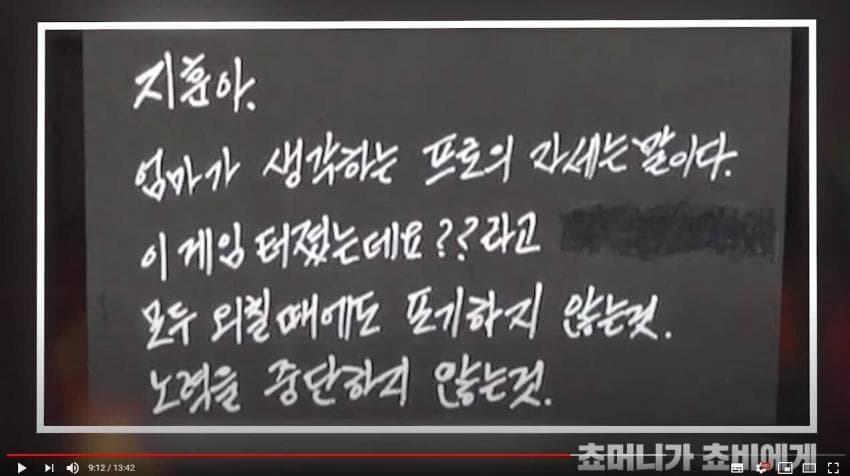 지훈아.
엄마가 생각하는 프로의 자세는 말이다.
이 게임 터졌는데요??라고
모두 외칠 때에도 포기하지 않는것.
노력을 중단하지 않는것.
쵸머니가 쵸비에게
9:12 / 13:42